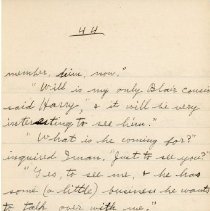 44
member, him, now."
"Will is my only Blair cousin
said Harry, & it will be very
interesting to see him."
"What is he coming for?"
inquired Iman. "Just to see you?"
"Yes, to see me, & he has
some (a little) business he wants
to talk over with me."